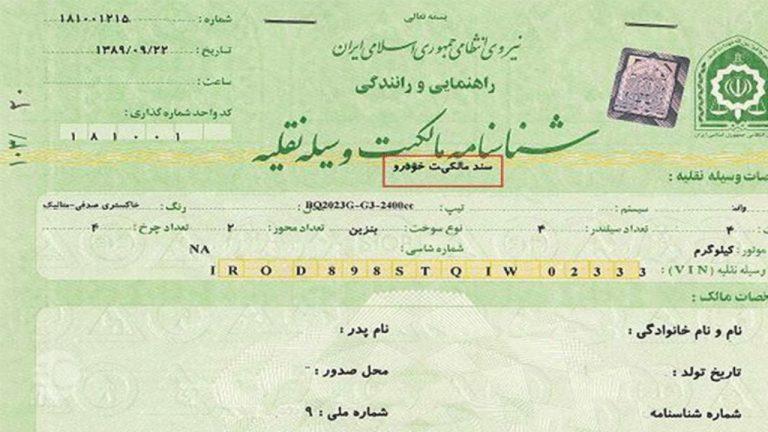 بسمه تعالی
شماره : ۱۸۱۰۰۱۲۱۵
نیروی انتظامی جمهوری اسلامی ایران
تاریخ : ۱۳۸۹/۰۹/۲۲
راهنمایی و رانندگی
ساعت :
کد واحد شماره گذاری :
۱ ۸ ۱ ۰ ۰ ۱
شناسنامه مالکیت وسیله نقلیه
سند مالکیت خودرو
صات وسیله نقلیه :
وانت سیستم : تیپ : BQ2023G-G3-2400cc رنگ : خاکستری صدفی-متالیک
۴ تعداد سیلندر : ۴ نوع سوخت : بنزین تعداد محور : ۲ تعداد چرخ : ۴
موتور : کیلوگرم شماره شاسی : NA
وسیله نقلیه (VIN) : IROD898STQIW02333
خصات مالک :
نام و نام خانوادگی : نام پدر :
تاریخ تولد : محل صدور : -
شماره شناسنامه شماره ملی : ۹